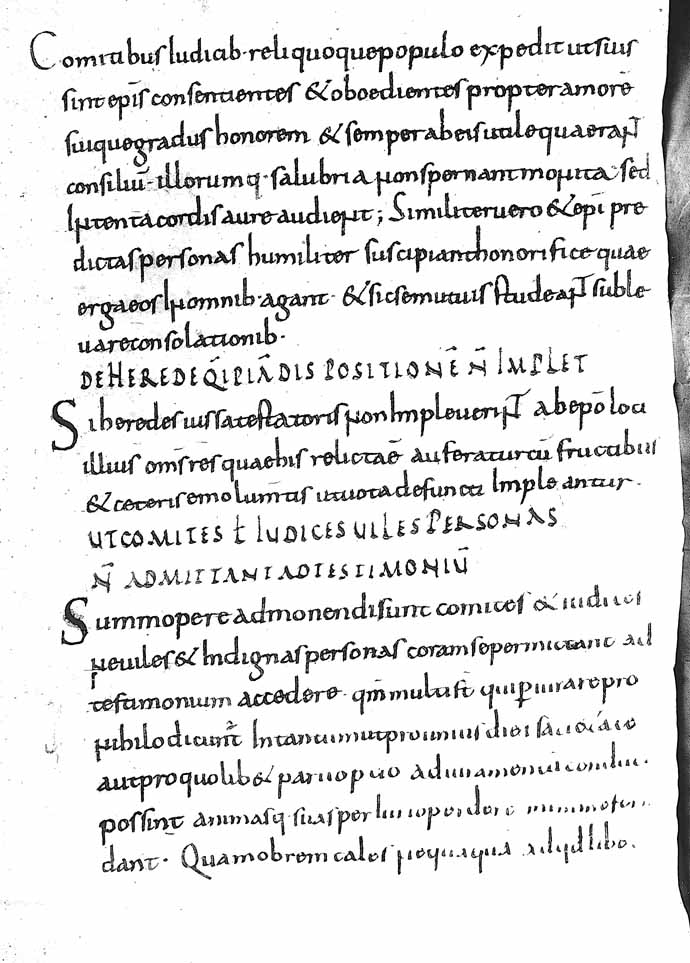 Comitibus Iudicib· reliquoque populo expedit ut suis
sint ep̄is consentientes & oboedientes propter amorē
sui que gradus honorem & semper ab eis utile quaerant
consiliū· illorumq· salubria non spernant monita· sed
Intenta cordis aure audient; Similiter uero & ep̄i pre
dictas personas humiliter suscipiant honorifice quae
erga eos In omnib· agant· & sic se mutuis studeant suble
uare consolationib·
DE HEREDE Q̄I PIĀ DISPOSITIONĒ N̄ IMPLET
Si heredes iussa testatoris non Impleuerint ab ep̄o loci
illius om̄s res quae his relictae auferatur cū fructibus
& ceteris emolumtis ut uota defuncti Impleantur·
UT COMITES ł IUDICES UILES PERSONAS
N̄ ADMITTANT AD TESTIMONIŪ
Summopere admonendi sunt comites & iudices
ne uiles & Indignas personas coram se permittant ad
testimonium accedere· qm̄ multi st̄ qui periurare pro
nihilo dicunt̄ In tantum ut pro unius diei
aut pro quolib& paruo p ad iuramentū
possint animasq· suas periurio perdere
dant· Quamobrem tales nequaquā ad qdlib&